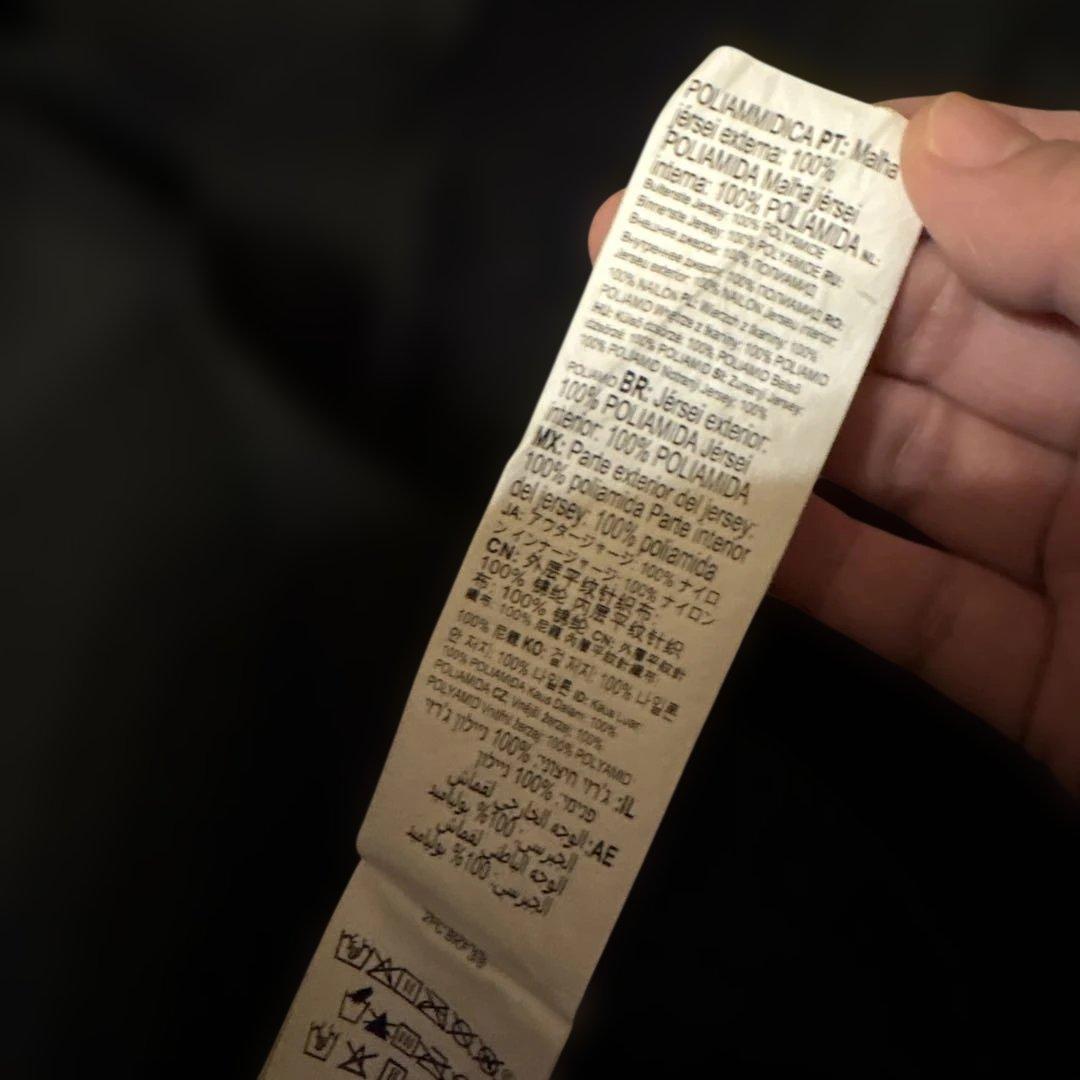 POLIAMMIDICA PT: Malha
jérsei externa: 100%
POLIAMIDA Malha jérsei
interna: 100% POLIAMIDA NL:
Buitenste Jersey: 100% POLYAMIDE
Binnenste Jersey: 100% POLYAMIDE RU:
Внешнее джерси: 100% ПОЛИАМИД
Внутреннее джерси: 100% ПОЛИАМИД RO:
Jerseu exterior: 100% NAILON Jerseu interior:
100% NAILON PL: Warstwa z tkaniny: 100%
POLIAMID Wnętrze z tkaniny: 100% POLIAMID
HU: Külső dzsörzé: 100% POLIAMID Belső
dzsörzé: 100% POLIAMID SK: Zunanji Jersey:
100% POLIAMID Notranji Jersey: 100%
POLIAMID BR: Jérsei exterior:
100% POLIAMIDA Jérsei
interior: 100% POLIAMIDA
MX: Parte exterior del jersey:
100% poliamida Parte interior
del jersey: 100% poliamida
JA: アウタージャージ: 100% ナイロ
ン インナージャージ: 100% ナイロン
CN: 外层平纹针织布:
100% 锦纶 内层平纹针织
布: 100% 锦纶 CN: 外層平紋針
織布: 100% 尼龍 內層平紋針織布:
100% 尼龍 KO: 겉 저지: 100% 나일론
안 저지: 100% 나일론 ID: Kaus Luar:
100% POLIAMIDA Kaus Dalam: 100%
POLIAMIDA CZ: Vnější žerzej: 100%
POLYAMID Vnitřní žerzej: 100% POLYAMID
IL: ג'רזי חיצוני: 100% ניילון ג'רזי
פנימי: 100% ניילון
AE: الوجه الخارجي لقماش
الجيرسي: 100% بولياميد
الوجه الباطني لقماش
الجيرسي: 100% بولياميد